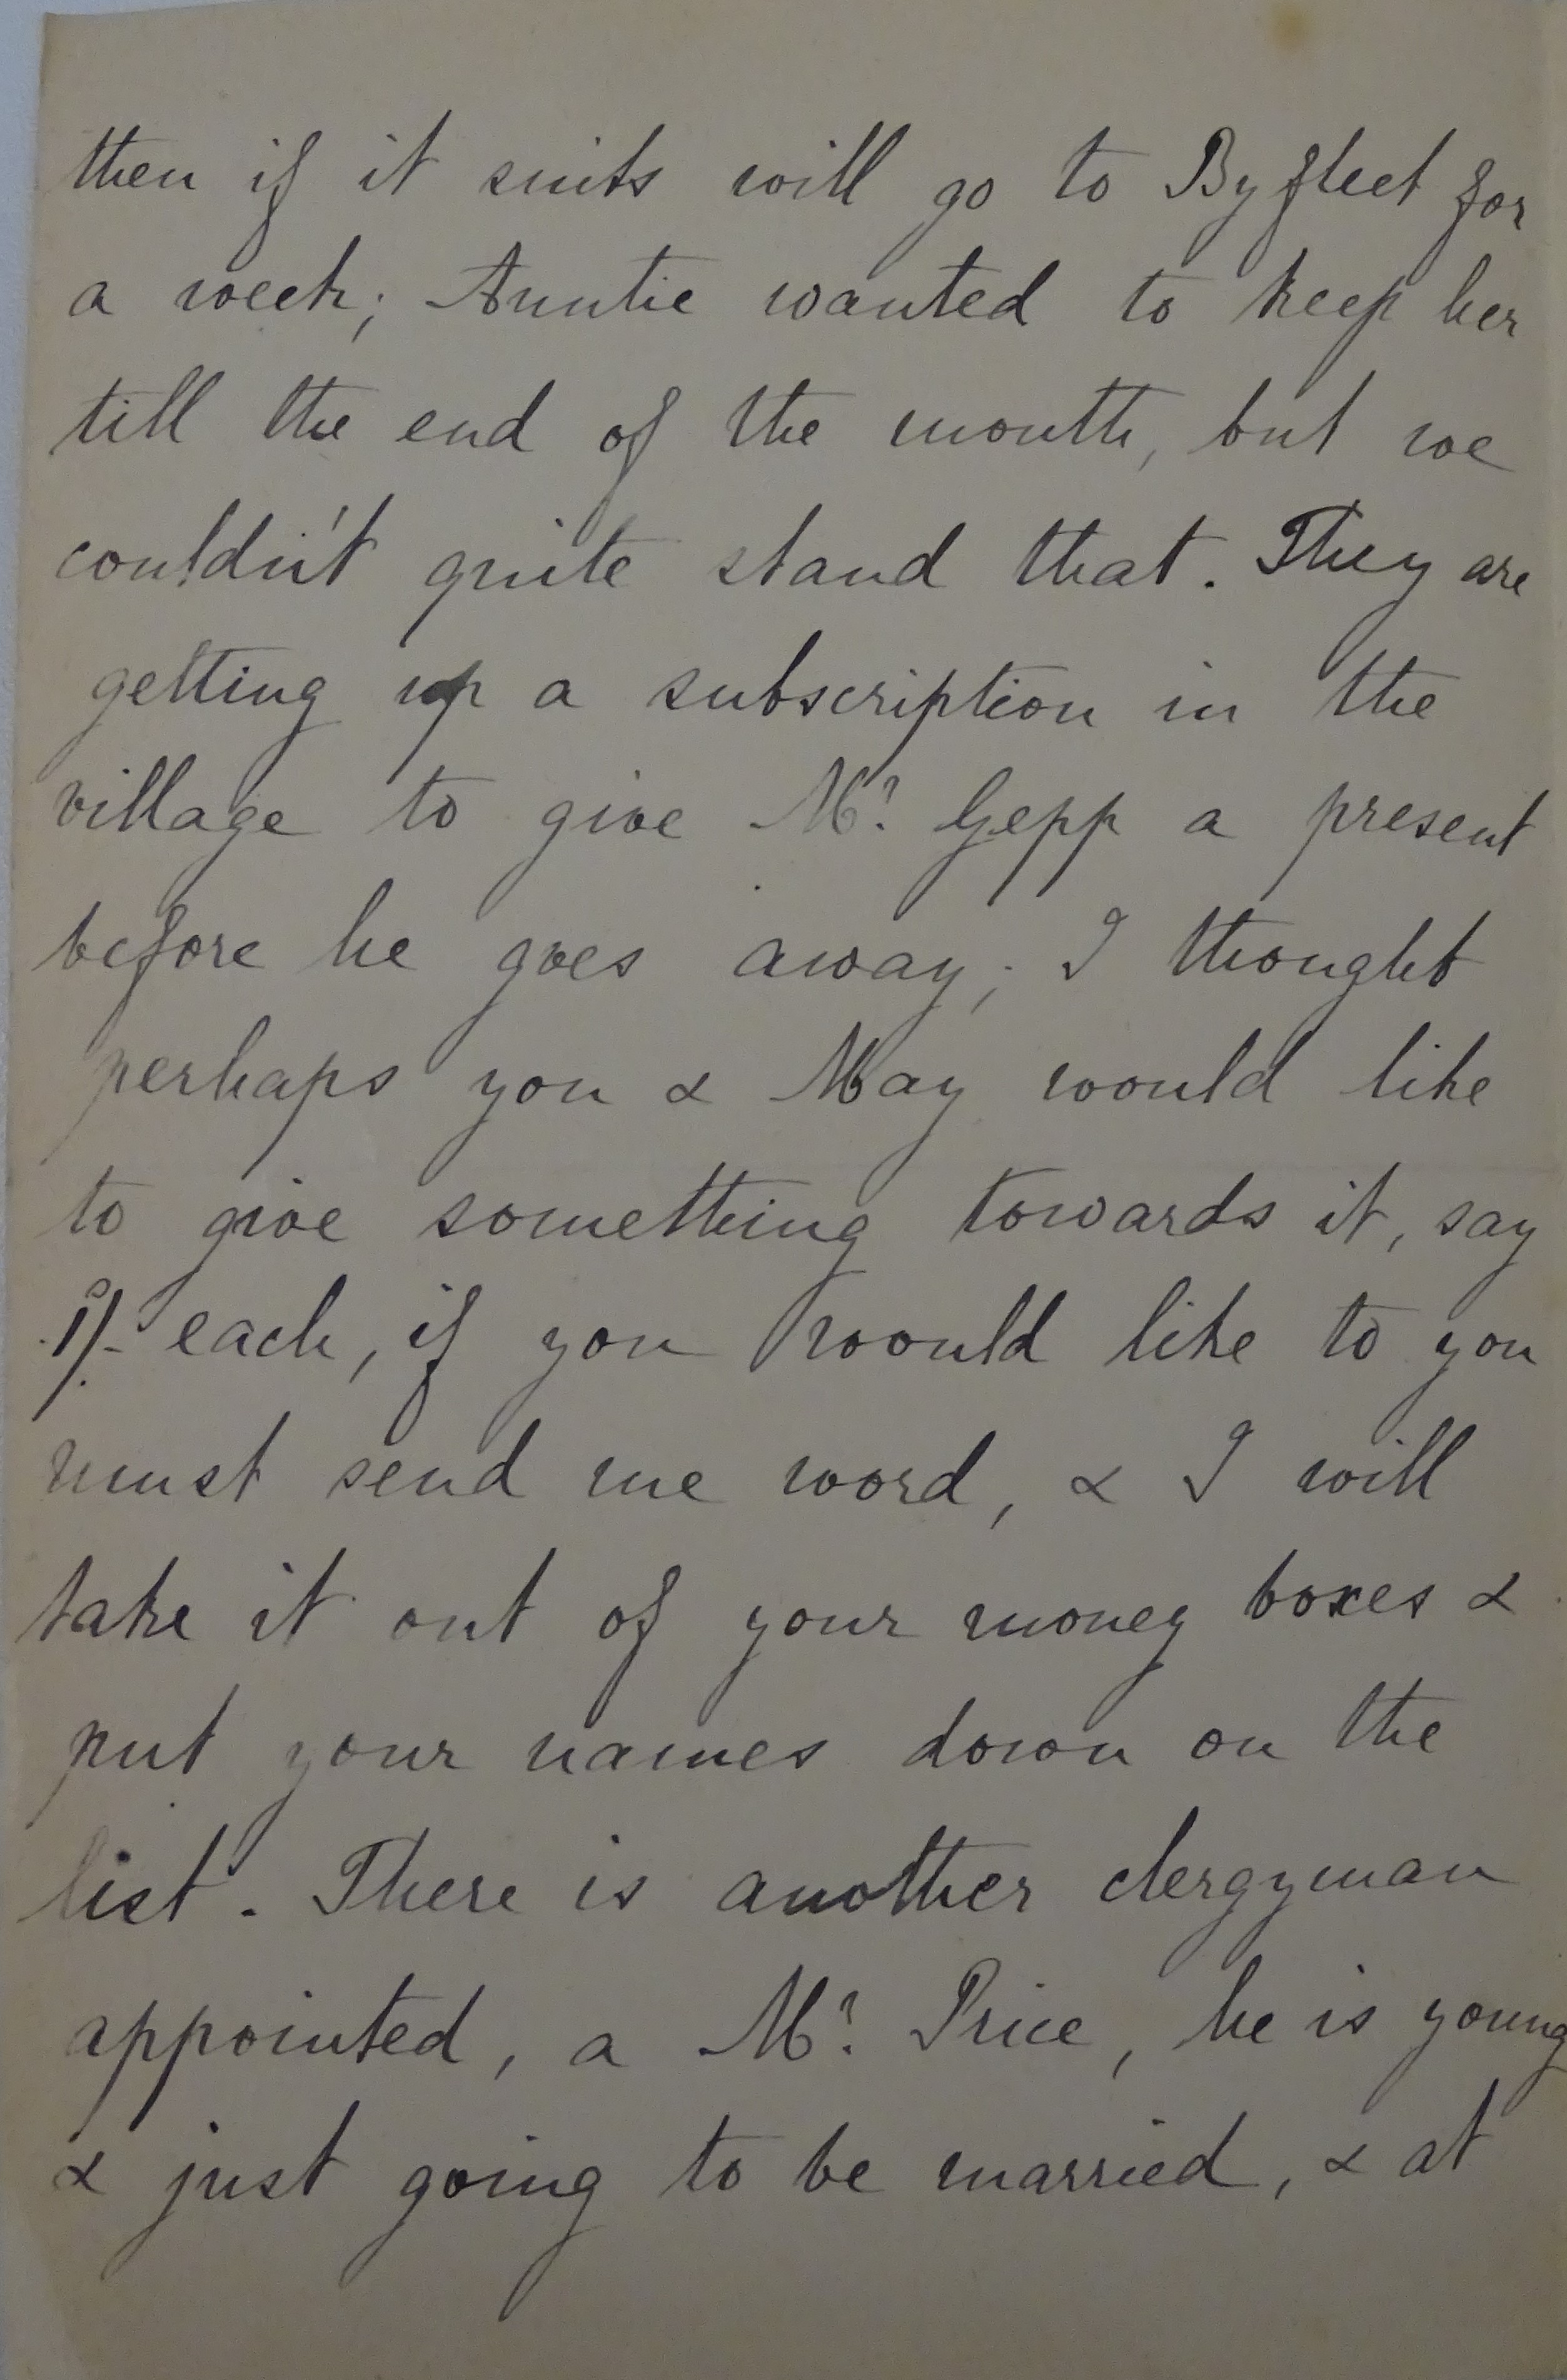 then if it suits will go to Byfleet for
a week; Auntie wanted to keep her
till the end of the month, but we
couldn't quite stand that. They are
getting up a subscription in the
village to give Mr. Gepp a present
before he goes away; I thought
perhaps you & May would like
to give something towards it, say
1/- each, if you would like to you
must send me word, & I will
take it out of your money boxes &
put your names down on the
list. There is another clergyman
appointed, a Mr. Price, he is young
& just going to be married, & at